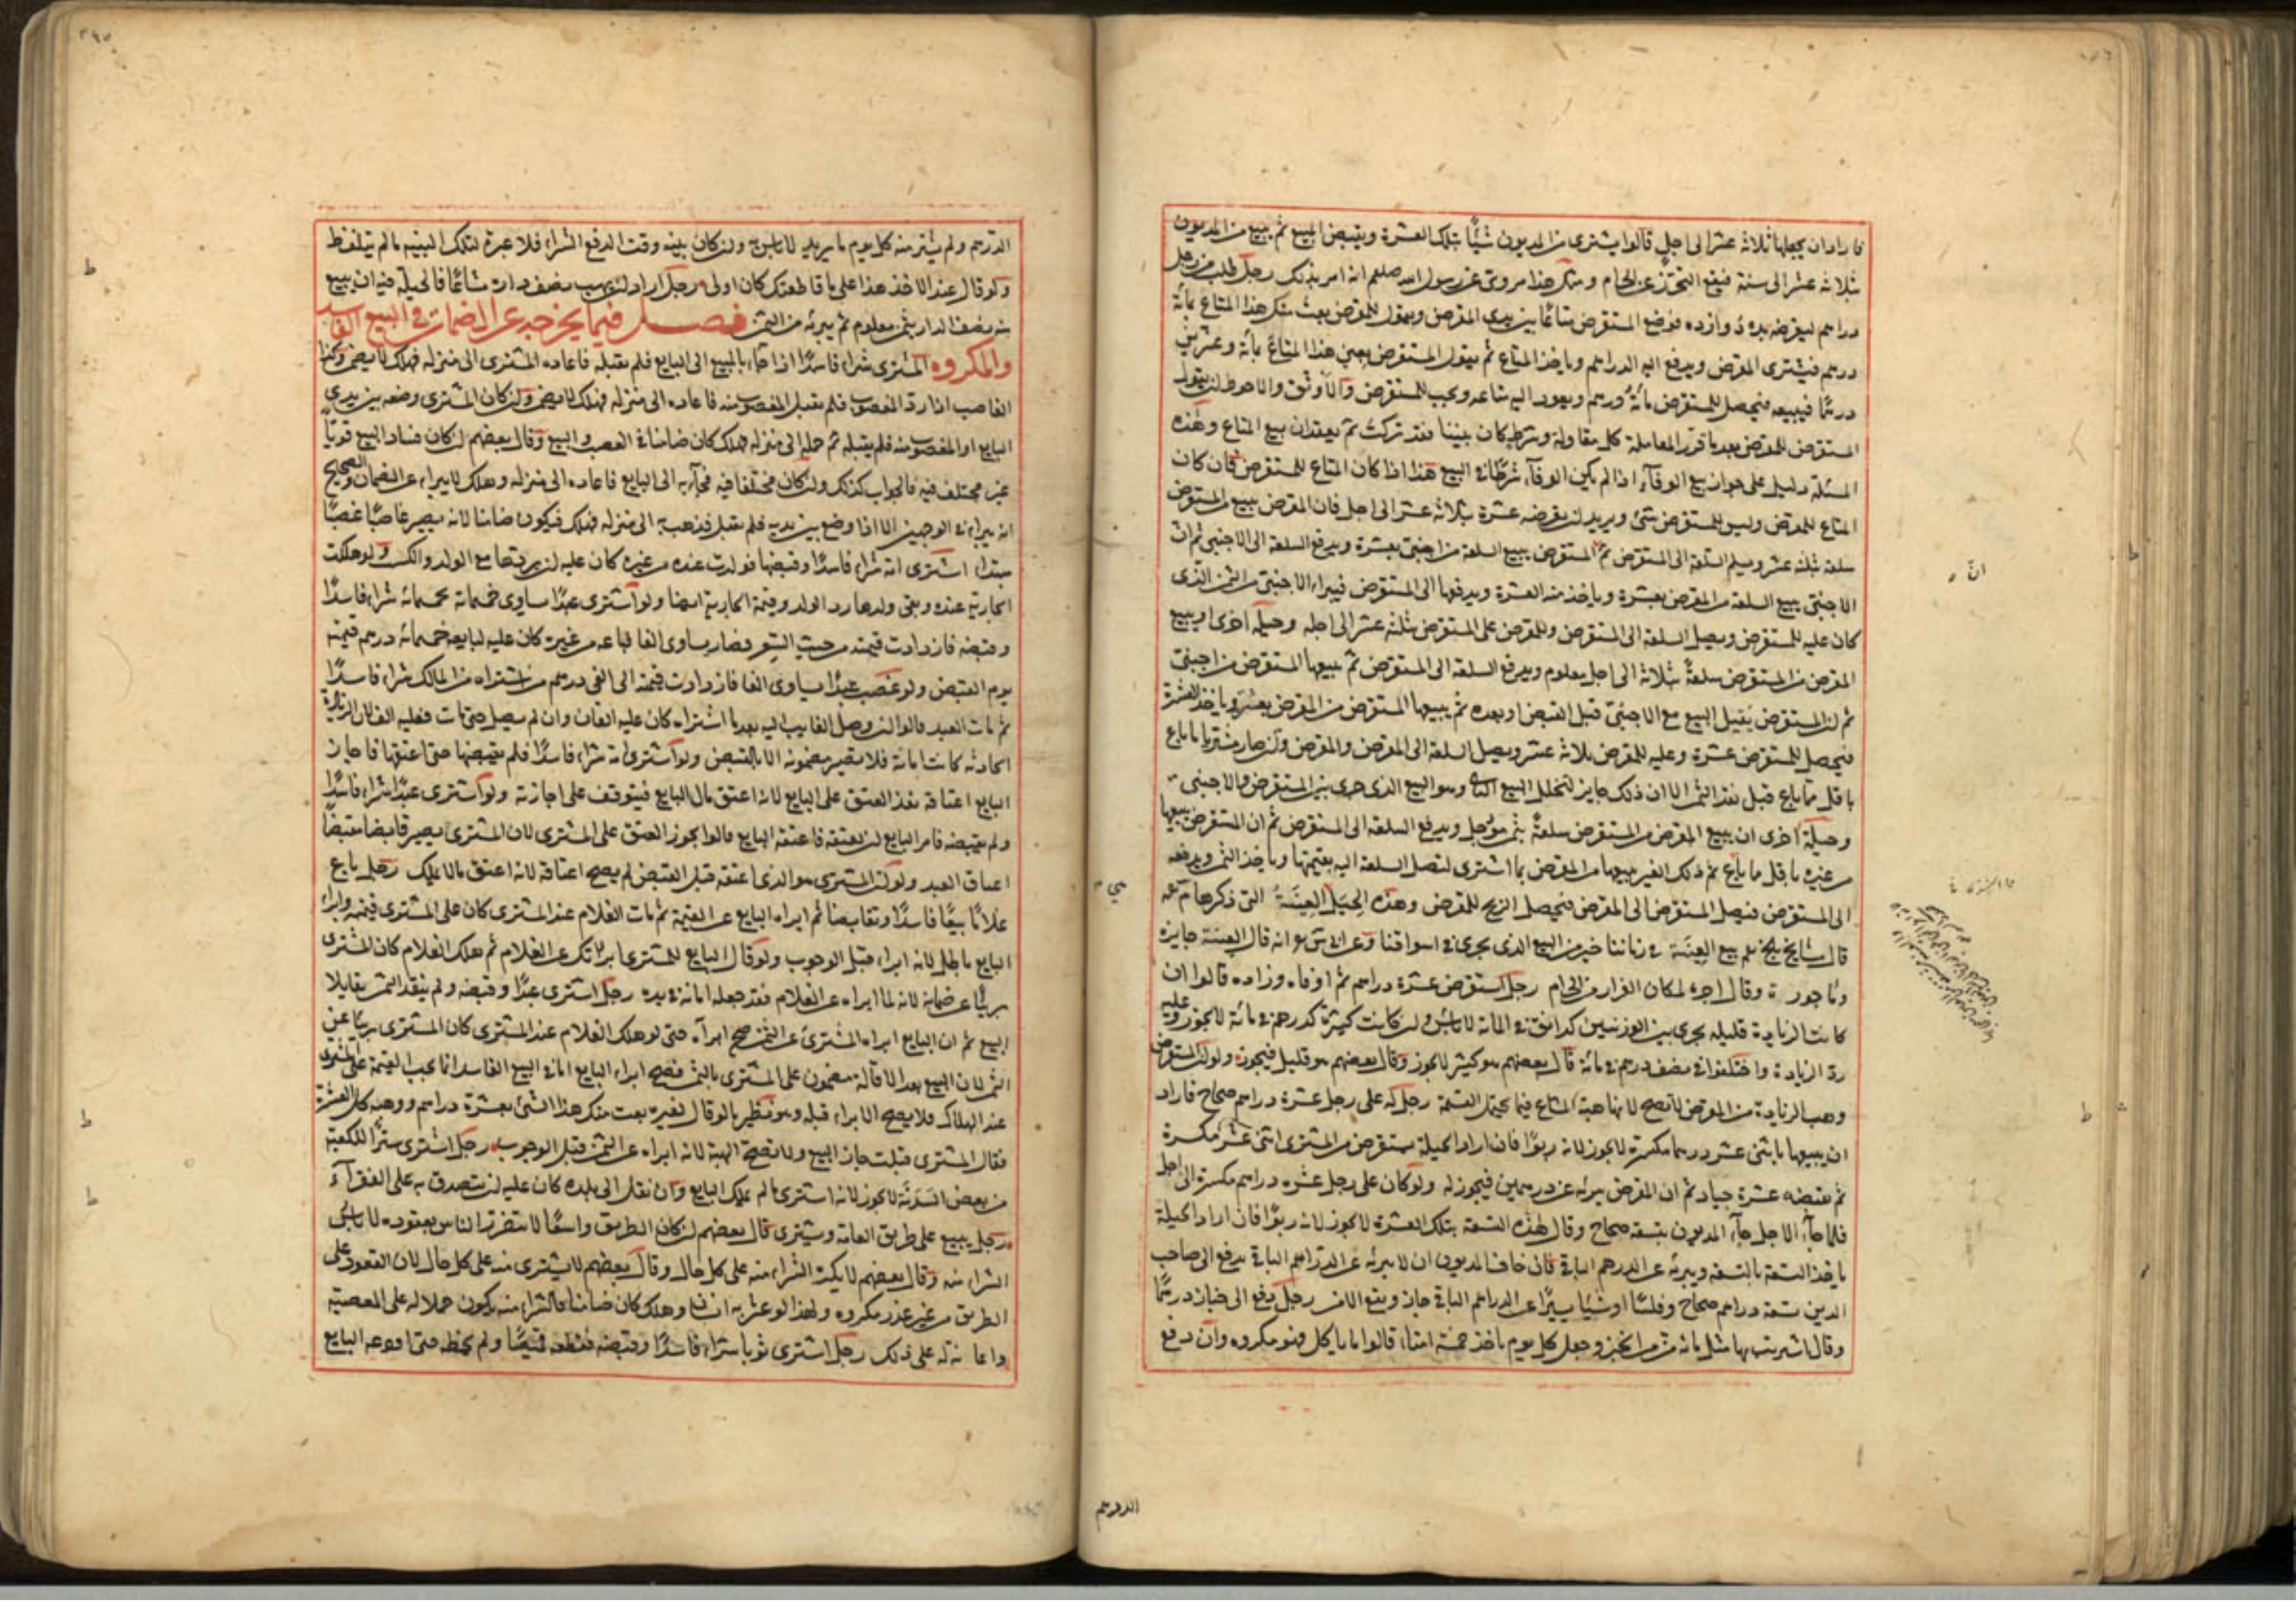 فاراد ان يجعلها ثلاثة عشر الى اجل قالوا يشترى من المديون شيئًا بتلك العشرة ويقبض المبيع ثم يبيع من المديون
بثلاثة عشر الى سنة فيقع التحرز عن الحرام ومثل هذا مروى عن رسول الله صلعم انه امر بذلك رجل طلب من رجل
دراهم ليقرضه بده دوازده فوضع المستقرض متاعًا بين يدى المقرض ويقول للمقرض بعت منك هذا المتاع بمائة
درهم فيشترى المقرض ويدفع اليه الدراهم وياخذ المتاع ثم يقول المستقرض بعنى هذا المتاع بمائة وعشرين
درهمًا فيبيعه فيحصل للمستقرض مائة درهم ويعود اليه متاعه ويجب للمقرض والاوثق والاحوط ان يقول
المستقرض للمقرض بعد ما قرر المعاملة كل مقاولة وشرط كان بيننا فقد تركت ثم يعقدان بيع المتاع وهذه
المسئلة دليل على جواز بيع الوفاء اذا لم يكن الوفاء شرطًا في البيع هذا اذا كان المتاع للمستقرض فان كان
المتاع للمقرض وليس للمستقرض شئ ويريد ان يقرضه عشرة بثلاثة عشر الى اجل فان المقرض يبيع من المستقرض
سلعة بثلثة عشر ويسلم السلعة الى المستقرض ثم المستقرض يبيع السلعة من اجنبى بعشرة ويدفع السلعة الى الاجنبى ثم ان
الاجنبى يبيع السلعة من المقرض بعشرة وياخذ منه العشرة ويدفعها الى المستقرض فيبراء الاجنبى من الثمن الذى
كان عليه للمستقرض ويصل السلعة الى المقرض وللمقرض على المستقرض ثلثة عشر الى اجله وحيلة اخرى ان يبيع
المقرض من المستقرض سلعةً بثلاثة الى اجل معلوم ويدفع السلعة الى المستقرض ثم يبيعها المستقرض من اجنبى
ثم ان المستقرض يقيل البيع مع الاجنبى قبل القبض او بعده ثم يبيعها المستقرض من المقرض بعشرة وياخذ العشرة
فيحصل للمستقرض عشرة وعليه للمقرض ثلاثة عشر ويصل السلعة الى المقرض والمقرض وان صار مشتريا ما باع
باقل مما باع قبل نقد الثمن الا ان ذلك جايز لتخلل البيع الثانى وهو البيع الذى جرى بين المستقرض والاجنبى
وحيلة اخرى ان يبيع المقرض من المستقرض سلعةً بثمن مؤجل ويدفع السلعة الى المستقرض ثم ان المستقرض يبيعها
من غيره باقل مما باع ثم ذلك الغير يبيعها من المقرض بما اشترى لتصل السلعة اليه بقيمتها وياخذ الثمن ويدفعه
الى المستقرض فيصل المستقرض الى القرض فيحصل الربح للمقرض وهذه الحِيَل العِينَة التى ذكرها محمد
قال مشايخ بلخ بيع العِينَة في زماننا خير من البيع الذى يجرى في اسواقنا وعن ابى يوسف انه قال العينة جايزة
ماجورة وقال اجره لمكان الفرار من الحرام رجل استقرض عشرة دراهم ثم اوفاه وزاده قالوا ان
كانت الزيادة قليلة يجرى بين الوزنين كدانق في المائة لا باس وان كانت كثيرة كدرهم في مائة لا يجوز وعليه
رد الزيادة واختلفوا في نصف درهم في مائة قال بعضهم هو كثير لا يجوز وقال بعضهم هو قليل فيجوز ولو ان المستقرض
وهب الزيادة من المقرض لا تصح لانها هبة المشاع فيما يحتمل القسمة رجل له على رجل عشرة دراهم صحاح فاراد
ان يبيعها باثنى عشر درهما مكسرة لا يجوز لانه ربوًا فان اراد الحيلة يستقرض من المشترى اثنى عشر مكسرة
ثم يقبضه عشرة جياد ثم ان المقرض يبرئه عن درهمين فيجوز له ولو كان على رجل عشرة دراهم مكسرة الى اجل
فلما جاء الاجل جاء المديون بتسعة صحاح وقال هذه التسعة بتلك العشرة لا يجوز لانه ربوًا فان اراد الحيلة
ياخذ التسعة بالتسعة ويبرئه عن الدرهم الباقى فان خاف المديون ان لا يبرئه عن الدراهم الباقى يدفع الى صاحب
الدين تسعة دراهم صحاح وفلسًا او شيئا يسيرًا عن الدراهم الباقى جاز ويقع الامن رجل دفع الى خباز درهمًا
وقال اشتريت بها مثل مائة من من الخبز وجعل كل يوم ياخذ خمسة امناء قالوا ما ياكل فهو مكروه وان دفع
انّ
الدرهم
الدرهم ولم يشتر منه كل يوم ما يريد لا باس به وان كان بينه وقت الدفع الشراء فلا عبرة لتلك البينه ما لم يتلفظ
ولو قال عند الاخذ هذا على ما قاطعتك كان اولى رجل اراد ان يهب نصف داره مشاعًا فالحيلة فيه ان يبيع
منه نصف الدار بثمن معلوم ثم يبرئه من الثمن فصل فيما يخرج به عن الضمان في البيع الفاسد
والمكروه المشترى شراءً فاسدًا اذا جاء بالمبيع الى البايع فلم يقبله فاعاده المشترى الى منزله فهلك لا يضمن وكذا
الغاصب اذا رد المغصوب فلم يقبل المغصوب منه فاعاده الى منزله فهلك لا يضمن وان كان المشترى وضعه بين يدى
البايع او المغصوب منه فلم يقبله ثم حمله الى منزله فهلك كان ضامنا في الغصب والبيع وقال بعضهم ان كان فساد البيع قويًا
غير مختلف فيه فالجواب كذلك وان كان مختلفا فيه فجاء به الى البايع فاعاده الى منزله وهلك لا يبراء عن الضمان والصحيح
انه يبراء في الوجهين الا اذا وضع بين يديه فلم يقبل فذهب به الى منزله فهلك فيكون ضامنا لانه يصير غاصبًا غصبًا
مبتدأ اشترى امة شراءً فاسدًا وقبضها فولدت عنده من غيره كان عليه ان يردها مع الولد والكسب ولو هلكت
الجارية عنده وبقى ولدها رد الولد وقيمة الجارية ايضا ولو اشترى عبدًا يساوى خمسمائة بخمسمائة شراءً فاسدًا
وقبضه فازدادت قيمته من حيث السعر فصار يساوى الفا فباعه من غيره كان عليه لبايعه خمسمائة درهم قيمته
يوم القبض ولو غصب عبدًا يساوى الفا فازدادت قيمته الى الفى درهم ثم اشتراه من المالك شراءً فاسدًا
ثم مات العبد قالوا ان وصل الغاصب اليه بعد ما اشتراه كان عليه الفان وان لم يصل حتى مات فعليه الف لان الزيادة
الحادثة كانت امانة فلا تصير مضمونة الا بالقبض ولو اشترى امة شراءً فاسدًا فلم يقبضها حتى اعتقها فاجاز
البايع اعتاقه نفذ العتق على البايع لانه اعتق مال البايع فيتوقف على اجازته ولو اشترى عبدًا شراءً فاسدًا
ولم يقبضه فامر البايع ان يعتقه فاعتقه البايع قالوا يجوز العتق على المشترى لان المشترى يصير قابضا مقتضًا
اعتاق العبد ولو ان المشترى هو الذى اعتقه قبل القبض لم يصح اعتاقه لانه اعتق ما لا يملك رجل باع
غلامًا بيعًا فاسدًا وتقابضا ثم ابراه البايع عن القيمة ثم مات الغلام عند المشترى كان على المشترى قيمته وابراء
البايع باطل لانه ابراء قبل الوجوب ولو قال البايع للمشترى ابراتك عن الغلام ثم هلك الغلام كان المشترى
بريئًا عن ضمانه لانه لما ابراه عن الغلام فقد جعله امانة في يده رجل اشترى عبدًا وقبضه ولم ينقد الثمن تقايلا
البيع ثم ان البايع ابراه المشترى عن الثمن صح ابراءه حتى لو هلك الغلام عند المشترى كان المشترى بريئًا عن
الثمن لان المبيع بعد الاقالة مضمون على المشترى بالثمن فصح ابراء البايع اما في البيع الفاسد انما يجب القيمة على المشترى
عند الهلاك فلا يصح الابراء قبله وهو نظير ما لو قال لغيره بعت منك هذا الشئ بعشرة دراهم ووهبت لك العشرة
فقال المشترى قبلت جاز البيع ولا تصح الهبة لانه ابراء عن الثمن قبل الوجوب رجل اشترى سترًا للكعبة
من بعض السَدَنَة لا يجوز لانه اشترى ما لم يملك البايع وان نقل الى بلده كان عليه ان يتصدق به على الفقراء
رجل يبيع على طريق العامة ويشترى قال بعضهم ان كان الطريق واسعًا لا يتضرر الناس بقعوده لا باس
الشراء منه وقال بعضهم لا يكره الشراء منه على كل حال وقال بعضهم لا يشترى منه على كل حال لان القعود على
الطريق من غير عذر مكروه ولهذا لو عثر به انسان وهلك كان ضامنا فالشراء منه يكون حملا له على المعصية
واعانة له على ذلك رجل اشترى ثوبا شراءً فاسدًا وقبضه فقطعه قميصًا ولم يخطه حتى اودعه البايع